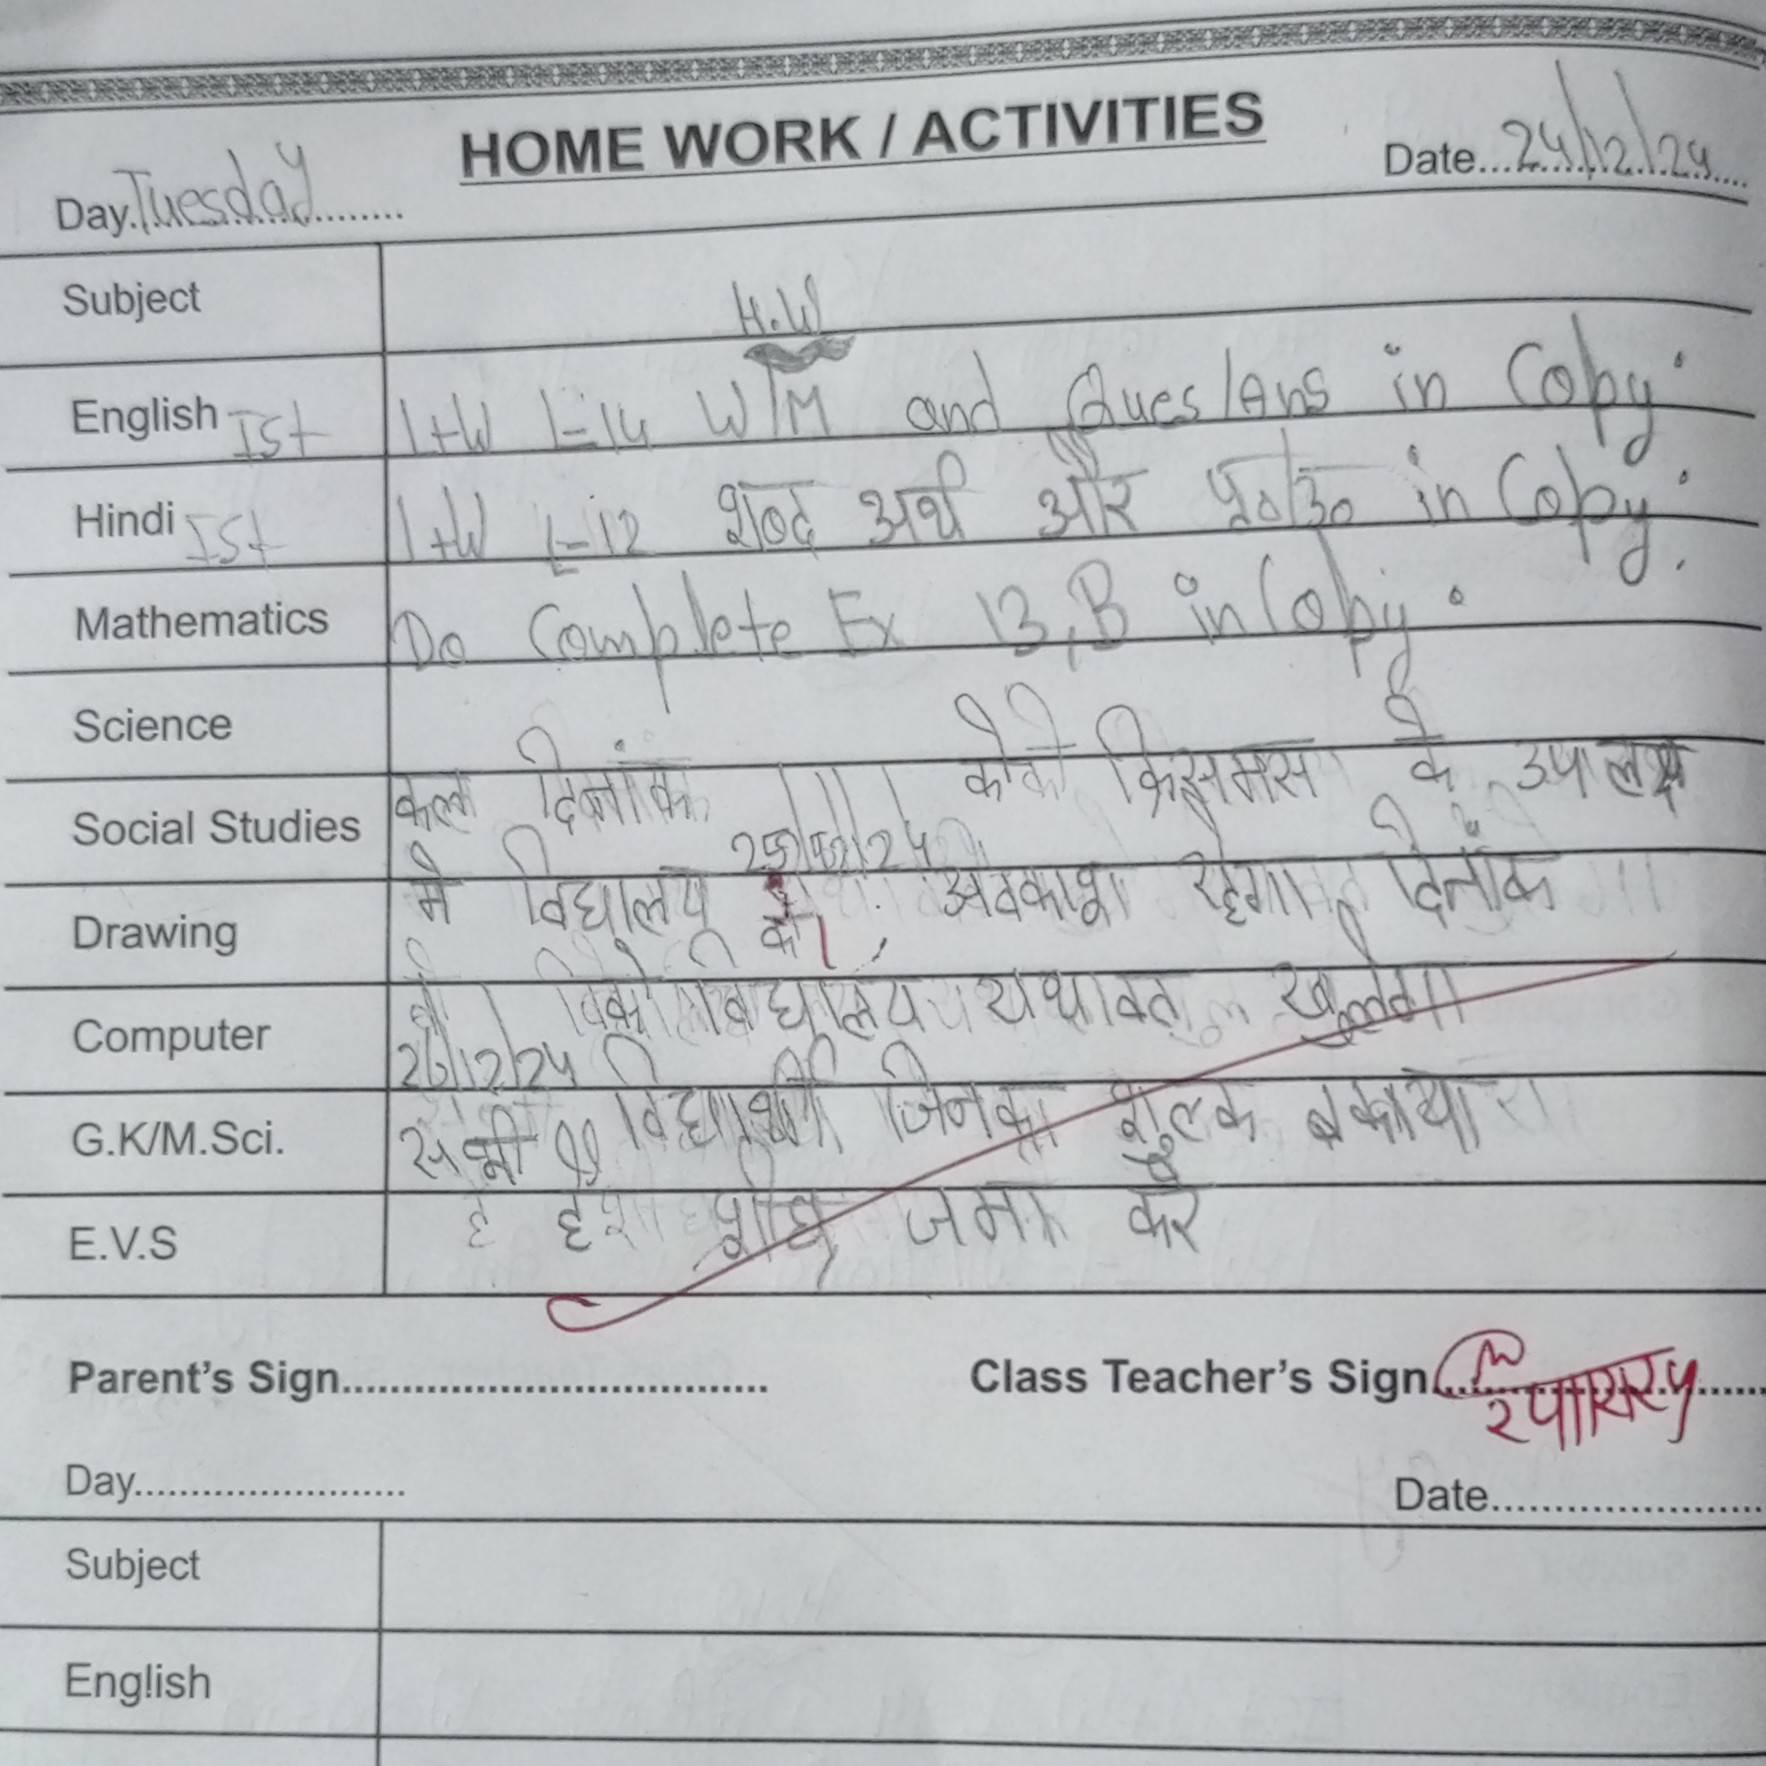 HOME WORK / ACTIVITIES
Day.Tuesday........ Date...24/12/24....
Subject H.W
English Ist L+W L-14 W/M and Ques/Ans in Copy.
Hindi Ist L+W L-12 शब्द अर्थ और प्र०/उ० in Copy.
Mathematics Do Complete Ex 13,B in Copy.
Science
Social Studies कल दिनांक 25/12/24 को क्रिसमस के उपलक्ष
Drawing मे विद्यालय अवकाश रहेगा दिनांक
Computer 26/12/24 को विद्यालय यथावत खुलेगा
G.K/M.Sci. सभी विद्यार्थी जिनका शुल्क बकाया
E.V.S है शीघ्र जमा करे
Parent's Sign.................................. Class Teacher's Sign
Day........................ Date........................
Subject
English